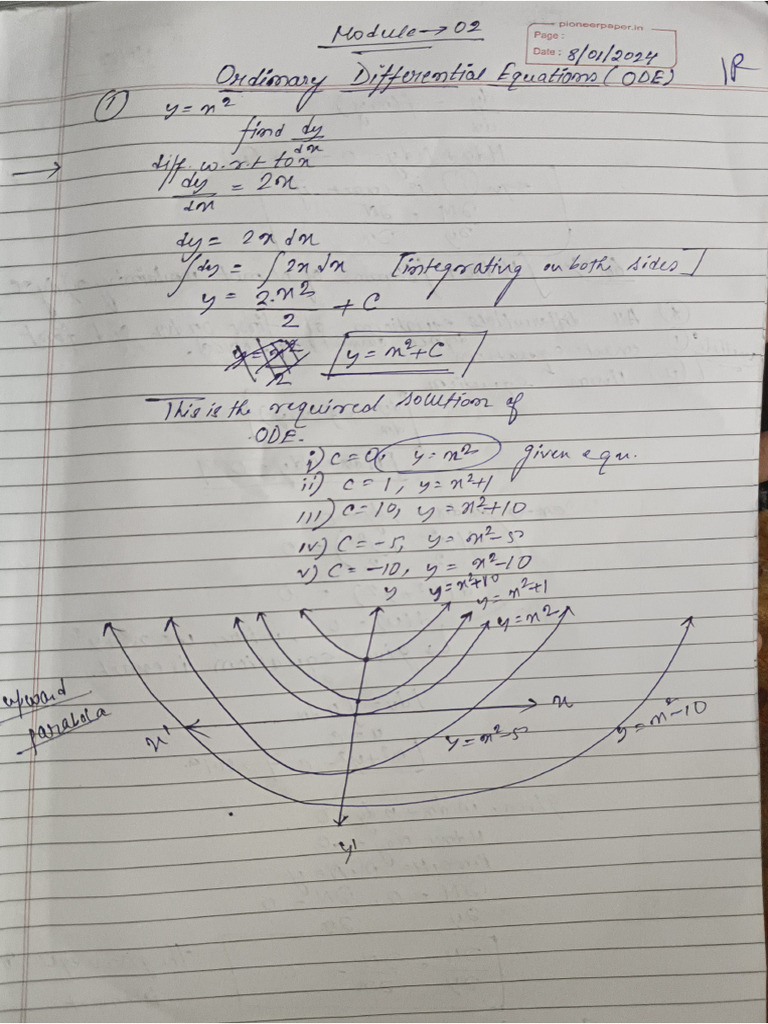 Module → 02
pioneerpaper.in
Page :
Date : 8/01/2024
Ordinary Differential Equations (ODE)
1R
① y = x²
find dy/dx
→ diff. w.r.t to x
dy/dx = 2x
dy = 2x dx
∫dy = ∫2x dx [integrating on both sides]
y = 2.x²/2 + C
y = x²/2 y = x² + C
This is the required solution of
ODE.
i) C = 0, y = x² given equ.
ii) C = 1, y = x²+1
iii) C = 10, y = x²+10
iv) C = -5, y = x²-5
v) C = -10, y = x²-10
y y = x²+10
y = x²+1
y = x²
upward
parabola
x' x
y = x²-5
y = x²-10
y'